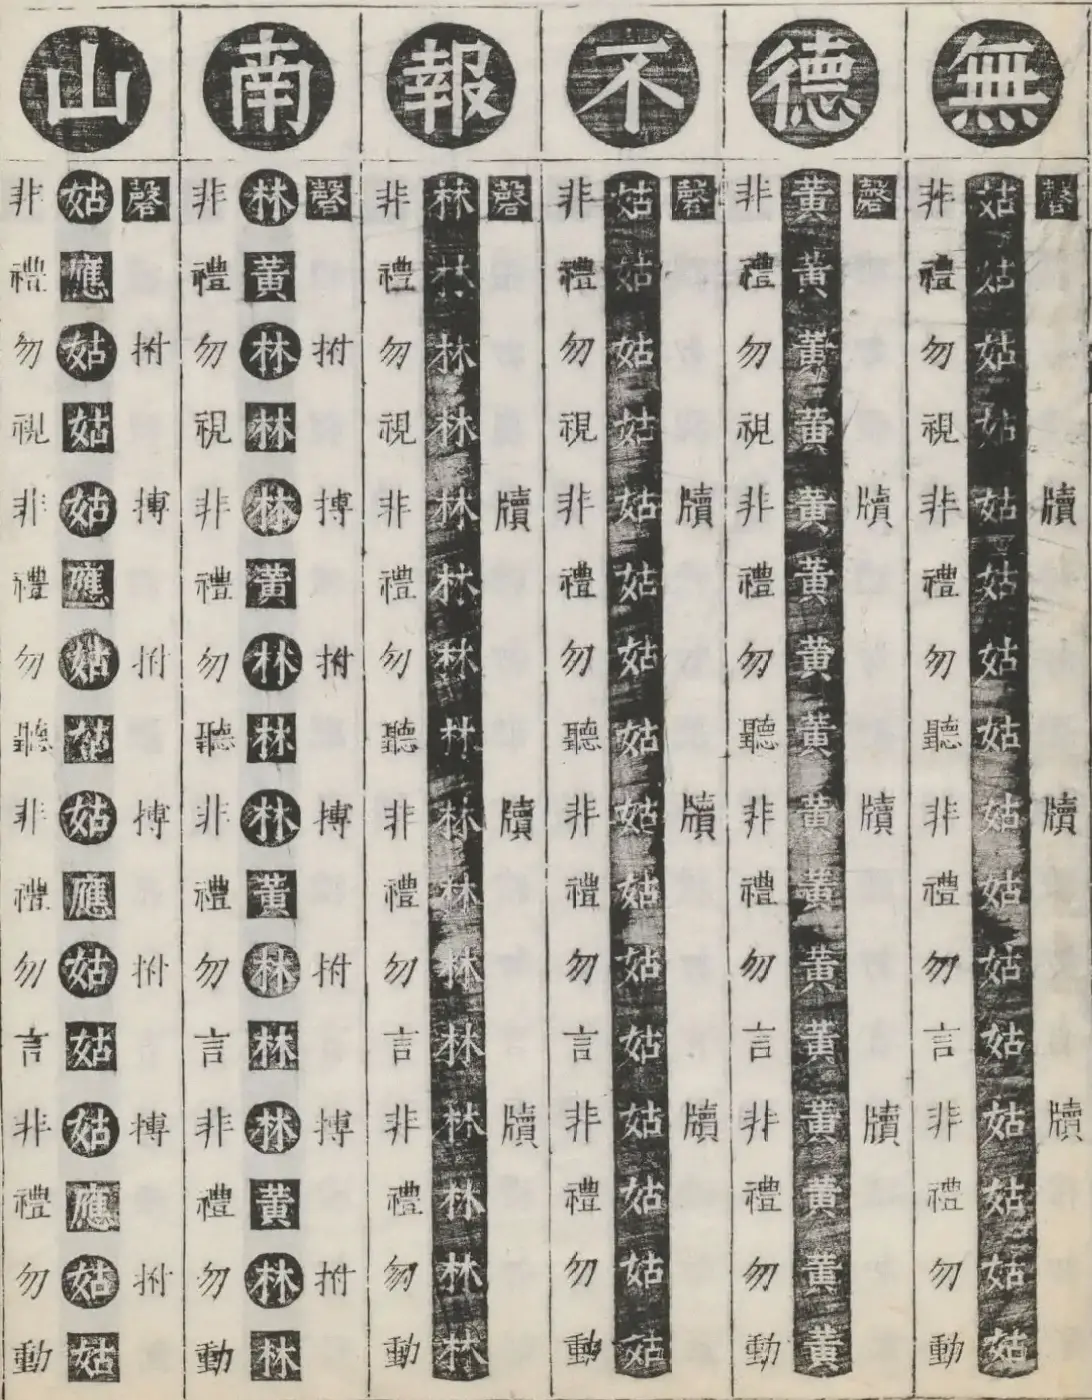 無
磬牘牘牘
姑姑姑姑姑姑姑姑姑姑姑姑姑姑姑姑
非禮勿視非禮勿聽非禮勿言非禮勿動
德
磬牘牘牘
黃黃黃黃黃黃黃黃黃黃黃黃黃黃黃黃
非禮勿視非禮勿聽非禮勿言非禮勿動
不
磬牘牘牘
姑姑姑姑姑姑姑姑姑姑姑姑姑姑姑姑
非禮勿視非禮勿聽非禮勿言非禮勿動
報
磬牘牘牘
林林林林林林林林林林林林林林林林
非禮勿視非禮勿聽非禮勿言非禮勿動
南
磬拊搏拊搏拊搏拊
林黃林林林黃林林林黃林林林黃林林
非禮勿視非禮勿聽非禮勿言非禮勿動
山
磬拊搏拊搏拊搏拊
姑應姑姑姑應姑姑姑應姑姑姑應姑姑
非禮勿視非禮勿聽非禮勿言非禮勿動